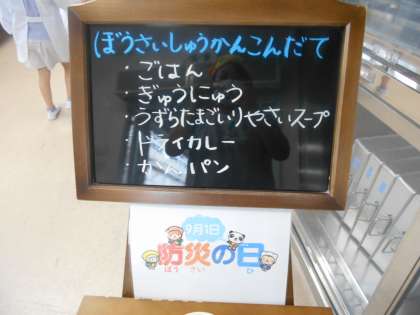 ぼうさいしゅうかんこんだて
・ごはん
・ぎゅうにゅう
・うずらたまごいりやさいスープ
・ドライカレー
・かんパン
9月1日
防災の日
ぼう さい ひ